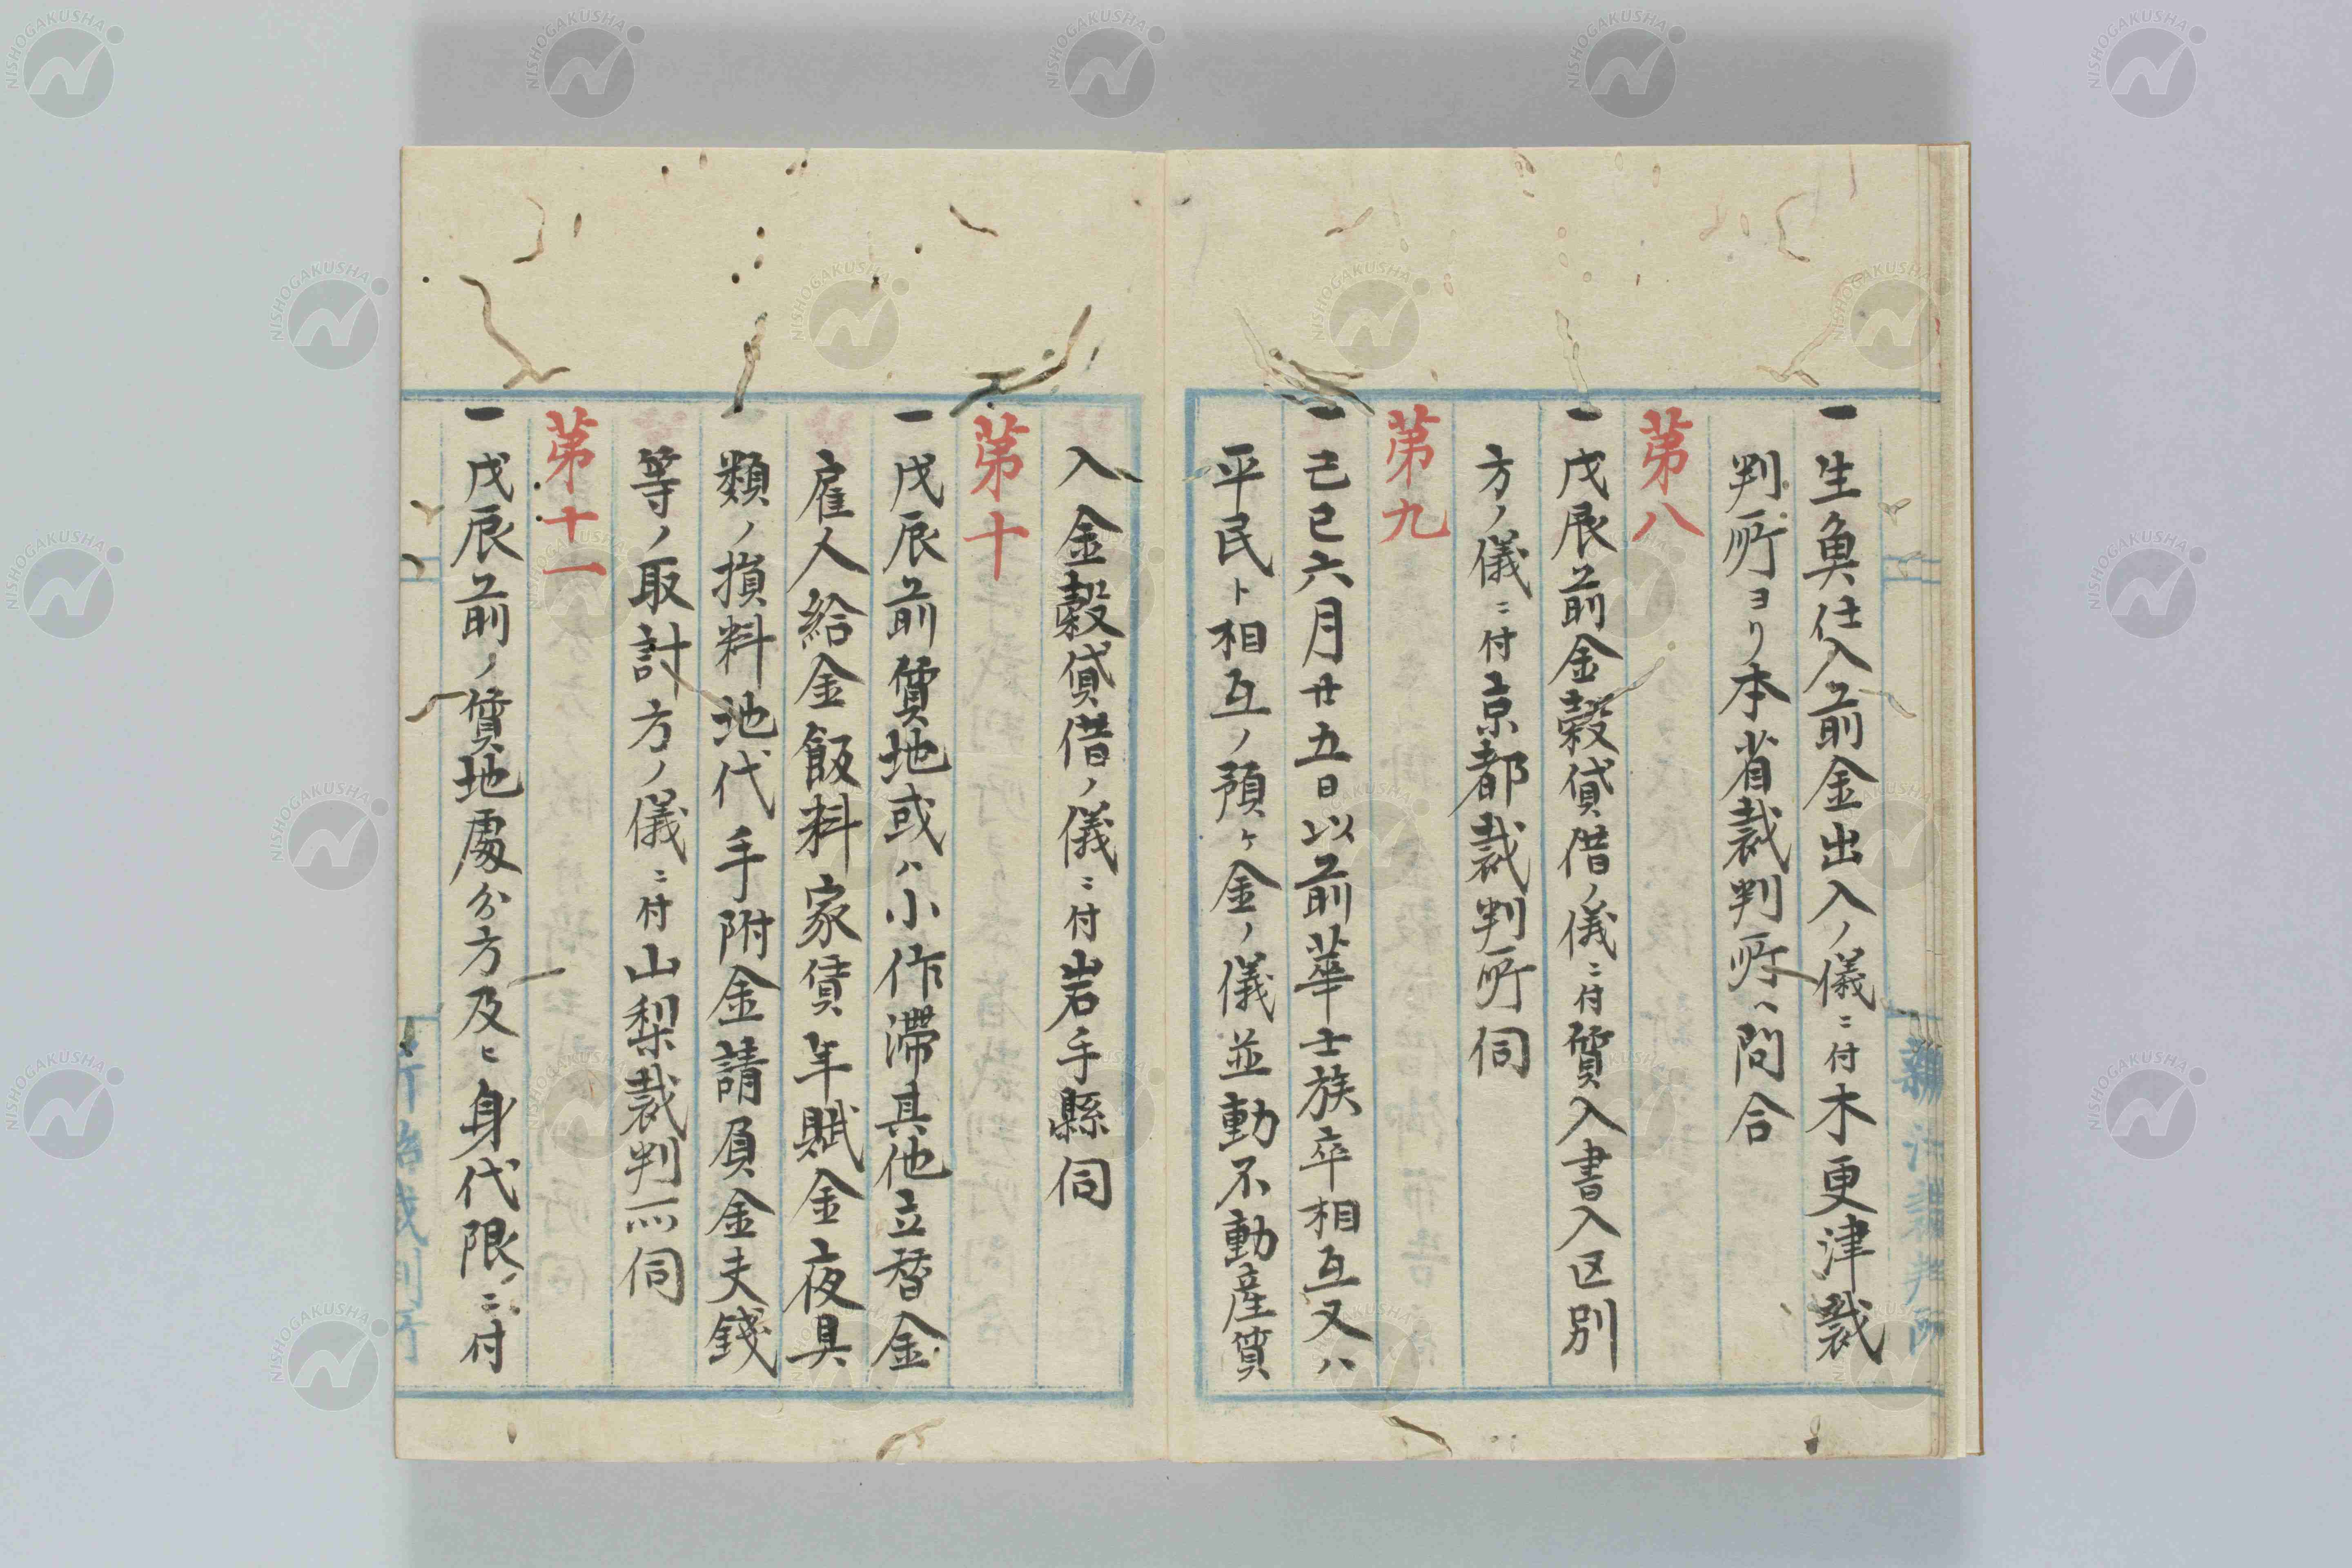 一生魚仕入前金出入ノ儀ニ付木更津裁
判所ヨリ本省裁判所ヘ問合
第八
一戊辰前金穀貸借ノ儀ニ付質入書入区別
方ノ儀ニ付京都裁判所伺
第九
一己巳六月廿五日以前華士族卒相互又ハ
平民ト相互ノ預ケ金ノ儀並動不動産質
入金穀貸借ノ儀ニ付岩手縣伺
第十
一戊辰前質地或ハ小作滞其他立替金
雇人給金飯料家賃年賦金夜具
類ノ損料地代手附金請負金夫錢
等ノ取計方ノ儀ニ付山梨裁判所伺
第十一
一戊辰前ノ質地處分方及ヒ身代限ノニ付
新治裁判所
NISHOGAKUSHA